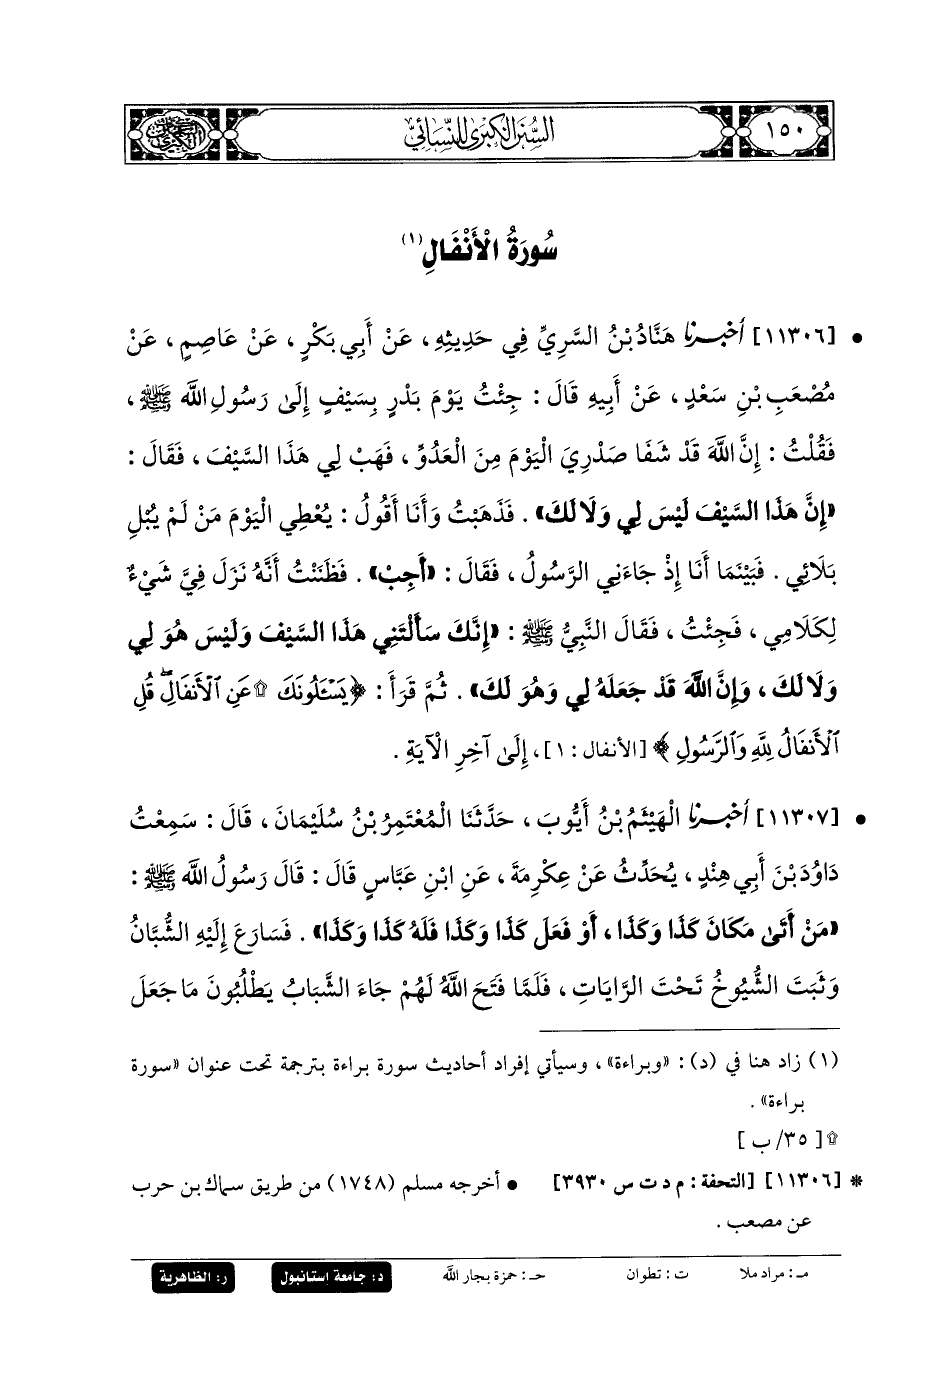 ١٥٠
السُّنَن الكُبرَى لِلنَّسَائِيّ
سُورَةُ الْأَنْفَالِ(١)
• [١١٣٠٦] أخبرنا هَنَّادُ بْنُ السَّرِيِّ فِي حَدِيثِهِ، عَنْ أَبِي بَكْرٍ، عَنْ عَاصِمٍ، عَنْ
مُصْعَبِ بْنِ سَعْدٍ، عَنْ أَبِيهِ قَالَ: جِئْتُ يَوْمَ بَدْرٍ بِسَيْفٍ إِلَىٰ رَسُولِ اللَّهِ ﷺ،
فَقُلْتُ: إِنَّ اللَّهَ قَدْ شَفَا صَدْرِيَ الْيَوْمَ مِنَ الْعَدُوِّ، فَهَبْ لِي هَذَا السَّيْفَ، فَقَالَ:
«إِنَّ هَذَا السَّيْفَ لَيْسَ لِي وَلَا لَكَ». فَذَهَبْتُ وَأَنَا أَقُولُ: يُعْطِي الْيَوْمَ مَنْ لَمْ يُبْلِ
بَلَائِي. فَبَيْنَمَا أَنَا إِذْ جَاءَنِي الرَّسُولُ، فَقَالَ: «أَجِبْ». فَظَنَنْتُ أَنَّهُ نَزَلَ فِيَّ شَيْءٌ
لِكَلَامِي، فَجِئْتُ، فَقَالَ النَّبِيُّ ﷺ: «إِنَّكَ سَأَلْتَنِي هَذَا السَّيْفَ وَلَيْسَ هُوَ لِي
وَلَا لَكَ، وَإِنَّ اللَّهَ قَدْ جَعَلَهُ لِي وَهُوَ لَكَ». ثُمَّ قَرَأَ: ﴿يَسْـَٔلُونَكَ ۩ عَنِ ٱلْأَنفَالِ ۖ قُلِ
ٱلْأَنفَالُ لِلَّهِ وَٱلرَّسُولِ﴾ [الأنفال: ١]، إِلَىٰ آخِرِ الْآيَةِ.
• [١١٣٠٧] أخبرنا الْهَيْثَمُ بْنُ أَيُّوبَ، حَدَّثَنَا الْمُعْتَمِرُ بْنُ سُلَيْمَانَ، قَالَ: سَمِعْتُ
دَاوُدَ بْنَ أَبِي هِنْدٍ، يُحَدِّثُ عَنْ عِكْرِمَةَ، عَنِ ابْنِ عَبَّاسٍ قَالَ: قَالَ رَسُولُ اللَّهِ ﷺ:
«مَنْ أَتَىٰ مَكَانَ كَذَا وَكَذَا، أَوْ فَعَلَ كَذَا وَكَذَا فَلَهُ كَذَا وَكَذَا». فَسَارَعَ إِلَيْهِ الشُّبَّانُ
وَثَبَتَ الشُّيُوخُ تَحْتَ الرَّايَاتِ، فَلَمَّا فَتَحَ اللَّهُ لَهُمْ جَاءَ الشَّبَابُ يَطْلُبُونَ مَا جَعَلَ
(١) زاد هنا في (د): «وبراءة»، وسيأتي إفراد أحاديث سورة براءة بترجمة تحت عنوان «سورة
براءة».
۩ [٣٥/ ب]
* [١١٣٠٦] [التحفة: م د ت س ٣٩٣٠] • أخرجه مسلم (١٧٤٨) من طريق سماك بن حرب
عن مصعب.
مـ: مراد ملا ت: تطوان حـ: حمزة بجار الله د: جامعة استانبول ر: الظاهرية